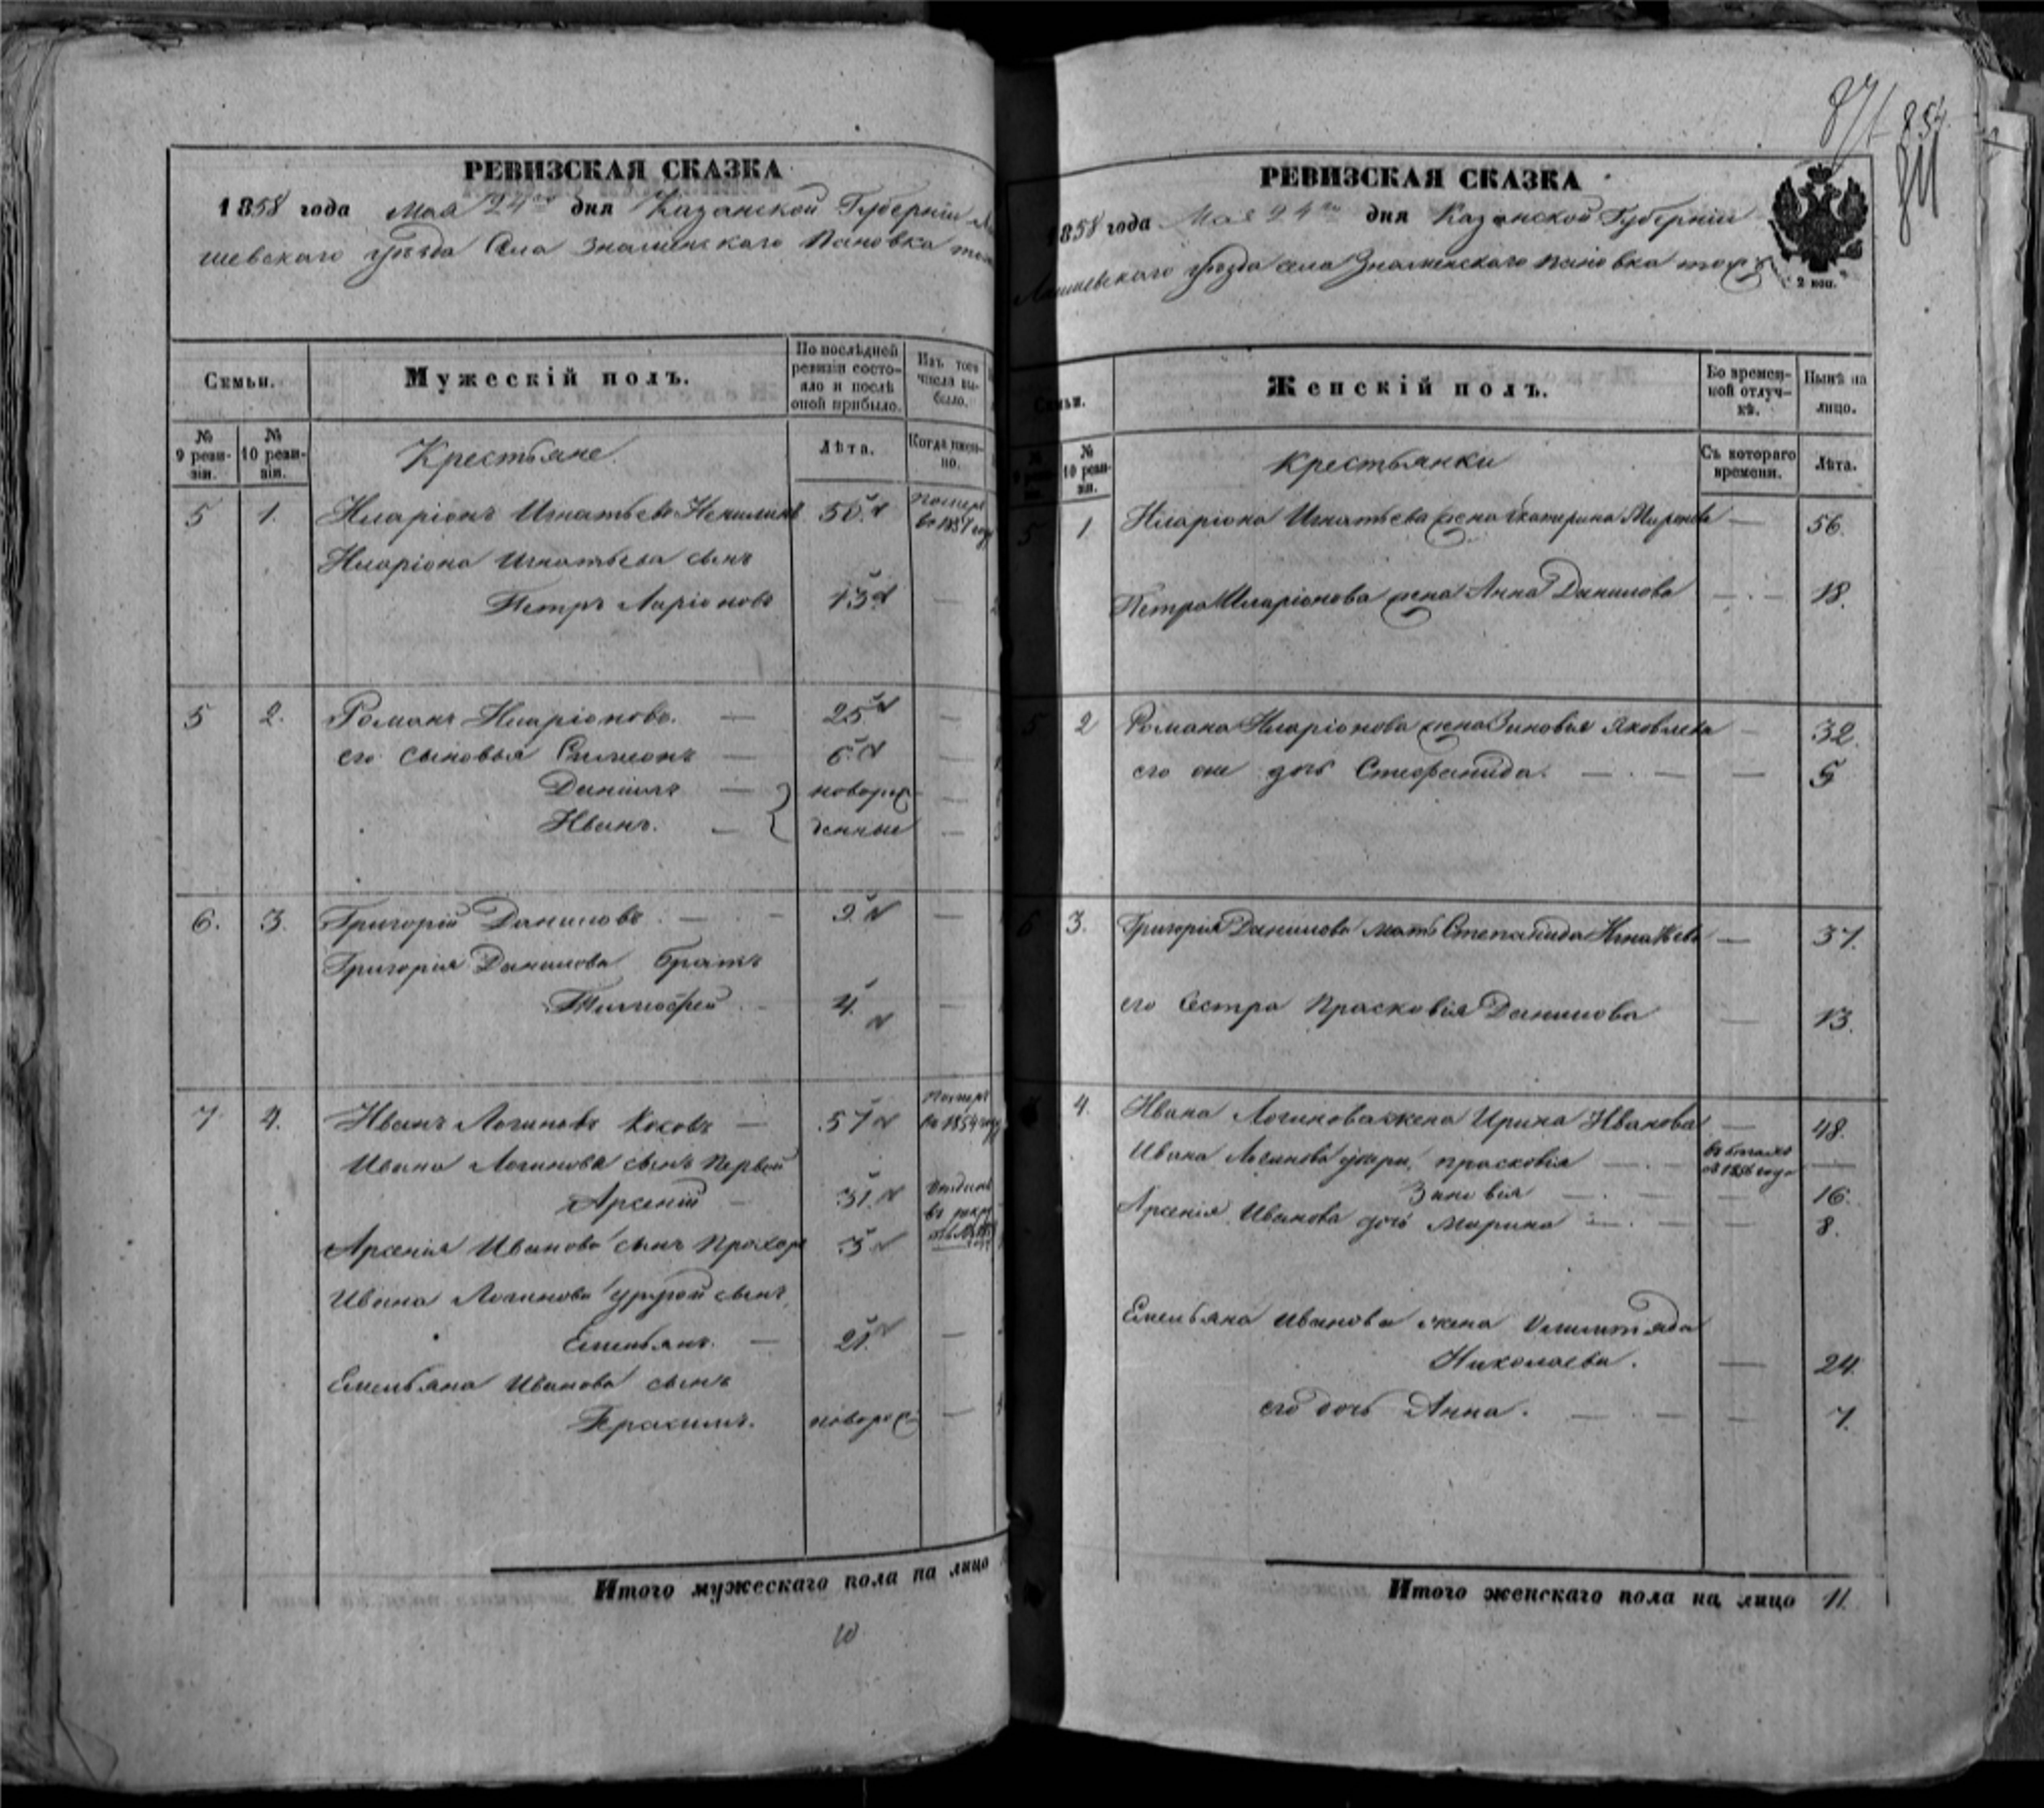 РЕВИЗСКАЯ СКАЗКА
1858 года Мая 24го дня Казанской Губерніи
шевскаго уѣзда Села Знаменскаго Пановка
Семьи.
Мужескій полъ.
По послѣдней ревизіи состояло и послѣ оной прибыло.
Изъ того числа выбыло.
№ 9 ревизіи.
№ 10 ревизіи.
Крестьяне
Лѣта.
Когда именно.
5 1. Иларіонъ Игнатьевъ 50. померъ въ 1857 году
Иларіона Игнатьева сынъ
Петръ Ларіоновъ 13 —
5 2. Романъ Иларіоновъ. — 25 —
его сыновья Симеонъ — 6 —
Даніилъ — новорож- —
Иванъ. — денные —
6. 3. Григорій Даниловъ — 9. —
Григорія Данилова братъ
Тимофей 4. —
7 4. Иванъ Логиновъ Косовъ — 57 померъ въ 1854 году
Ивана Логинова сынъ первой
Арсеній — 31. отданъ въ рекр
Арсенія Иванова сынъ Прохоръ 3
Ивана Логинова другой сынъ,
Емельянъ. — 21. —
Емельяна Иванова сынъ
Герасимъ. новорож —
Итого мужескаго пола на лицо
10
871
854
РЕВИЗСКАЯ СКАЗКА
1858 года Мая 24го дня Казанской Губерніи
Лаишевскаго уѣзда села Знаменскаго Пановка тожъ
2 коп.
Семьи.
Женскій полъ.
Во временной отлучкѣ.
Нынѣ на лицо.
№ 10 ревизіи.
Крестьянки
Съ котораго времени.
Лѣта.
5 1 Иларіона Игнатьева жена Екатерина Миронова — 56.
Петра Иларіонова жена Анна Данилова — 18.
5 2 Романа Иларіонова жена Зиновья Яковлева — 32.
его же дочь Стефанида. — — 5
6 3. Григорія Данилова мать Степанида — 37.
его Сестра Прасковія Данилова — 13.
4. Ивана Логинова жена Ирина Иванова — 48.
Ивана Логинова дочери, прасковія — въ бегахъ съ 1856 года —
Зиновія — — 16.
Арсенія Иванова дочь Марина — — 8.
Емельяна Иванова жена
Николаева. — 24.
его дочь Анна. — — 7.
Итого женскаго пола на лицо 11.